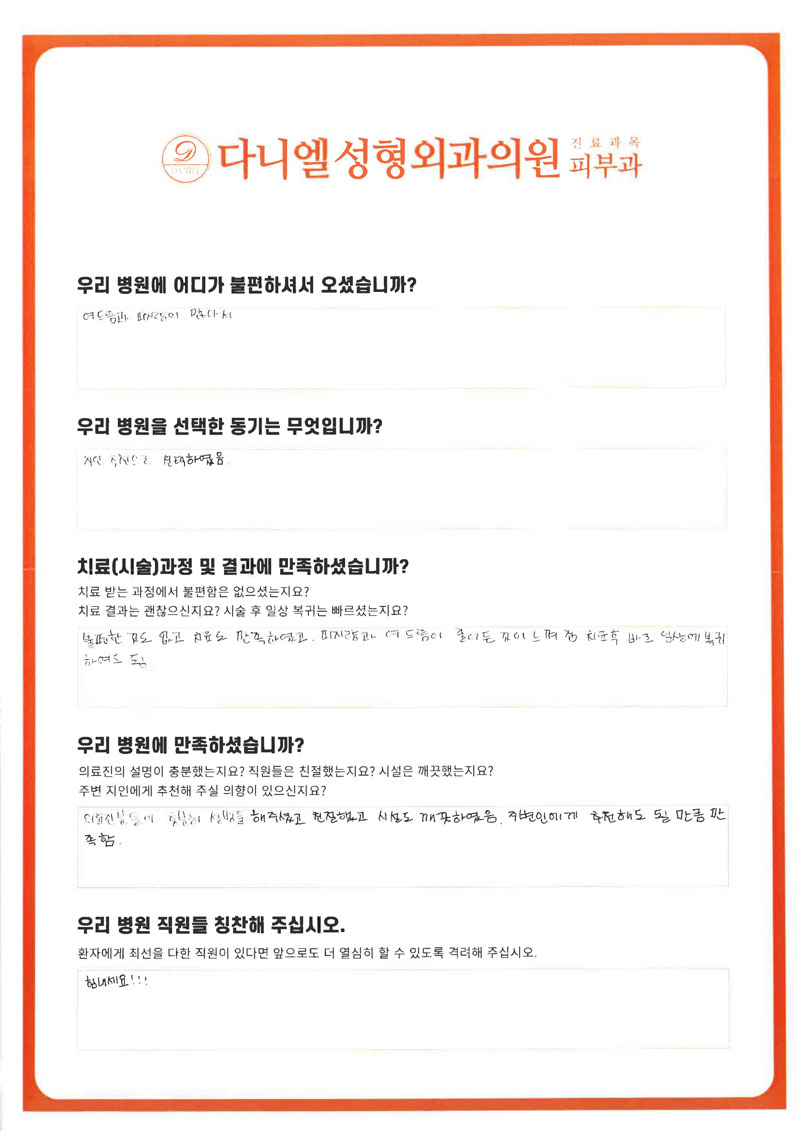 다니엘성형외과의원 진료과목 피부과
우리 병원에 어디가 불편하셔서 오셨습니까?
여드름과 피지량이 많아서
우리 병원을 선택한 동기는 무엇입니까?
지인 추천으로 선택하였음.
치료(시술)과정 및 결과에 만족하셨습니까?
치료 받는 과정에서 불편함은 없으셨는지요?
치료 결과는 괜찮으신지요? 시술 후 일상 복귀는 빠르셨는지요?
불편한 점도 없고 치료도 만족하였고. 피지량과 여드름이 줄어든 점이 느껴 바로 일상에 복귀
하여도 됨
우리 병원에 만족하셨습니까?
의료진의 설명이 충분했는지요? 직원들은 친절했는지요? 시설은 깨끗했는지요?
주변 지인에게 추천해 주실 의향이 있으신지요?
의료진분들이 충분히 설명을 해주셨고 친절했고 시설도 깨끗하였음. 주변인에게 추천해도 될 만큼 만
족함.
우리 병원 직원들 칭찬해 주십시오.
환자에게 최선을 다한 직원이 있다면 앞으로도 더 열심히 할 수 있도록 격려해 주십시오.
힘내세요!!!